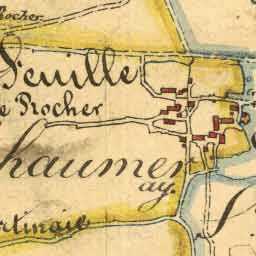 Rocher.
Feuille
e Rocher
haumer
ay.
rtinais